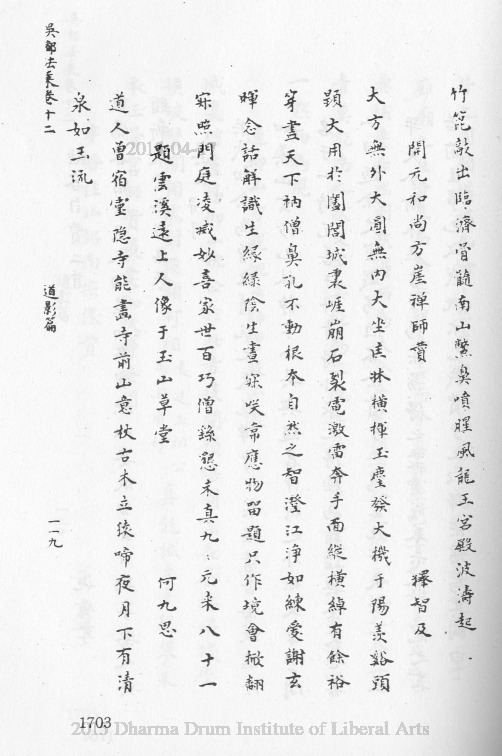 吳都法乘卷十二
竹箆敲出臨濟骨髓南山鱉鼻噴腥風龍王宮殿波濤起
開元和尚方崖禪師贊
釋智及
大方無外大圓無內大坐匡牀橫揮玉麈發大機于陽羨谿頭
顯大用於闔閭城裏崕崩石裂電激雷奔手面縱橫綽有餘裕
穿盡天下衲僧鼻孔不動根本自然之智澄江淨如練愛謝玄
暉念話解識生緣綠陰生晝寂咲韋應物留題只作境會掀翻
寂照門庭凌滅妙喜家世百巧僧繇懇未真九九元來八十一
題雲溪逺上人像于玉山草堂
何九思
道人曾宿靈隐寺能畵寺前山意杖古木立猿啼夜月下有清
泉如玉流
道影篇
一一九
1703
2013-04-17
2013 Dharma Drum Institute of Liberal Arts